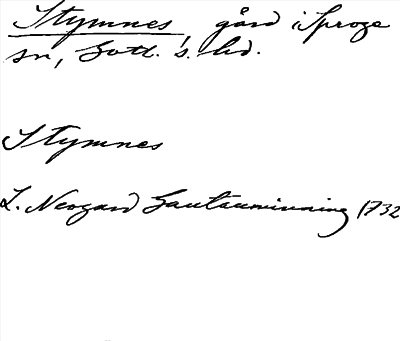 Stymnes, gård i Sproge
sn, Gotl. s. hd.
Stymnes
L. Neogard Gautauminning 1732